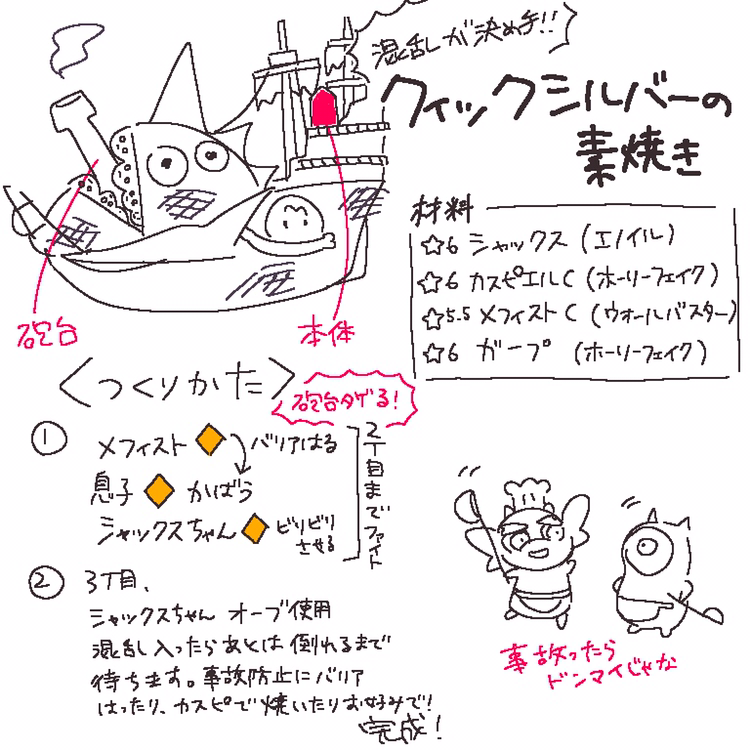 混乱が決め手!!
クイックシルバーの
素焼き
材料
☆6 シャックス (エノイル)
☆6 カスピエルC (ホーリーフェイク)
☆5.5 メフィストC (ウォールバスター)
☆6 ガープ (ホーリーフェイク)
砲台
本体
<つくりかた>
砲台タゲる!
① メフィスト◆バリアはる
息子◆かばう
シャックスちゃん◆ビリビリ
させる
2丁目までファイト
② 3丁目、
シャックスちゃん オーブ使用
混乱入ったらあとは倒れるまで
待ちます。事故防止にバリア
はったり、カスピで焼いたりお好みで!
完成!
事故ったら
ドンマイじゃな